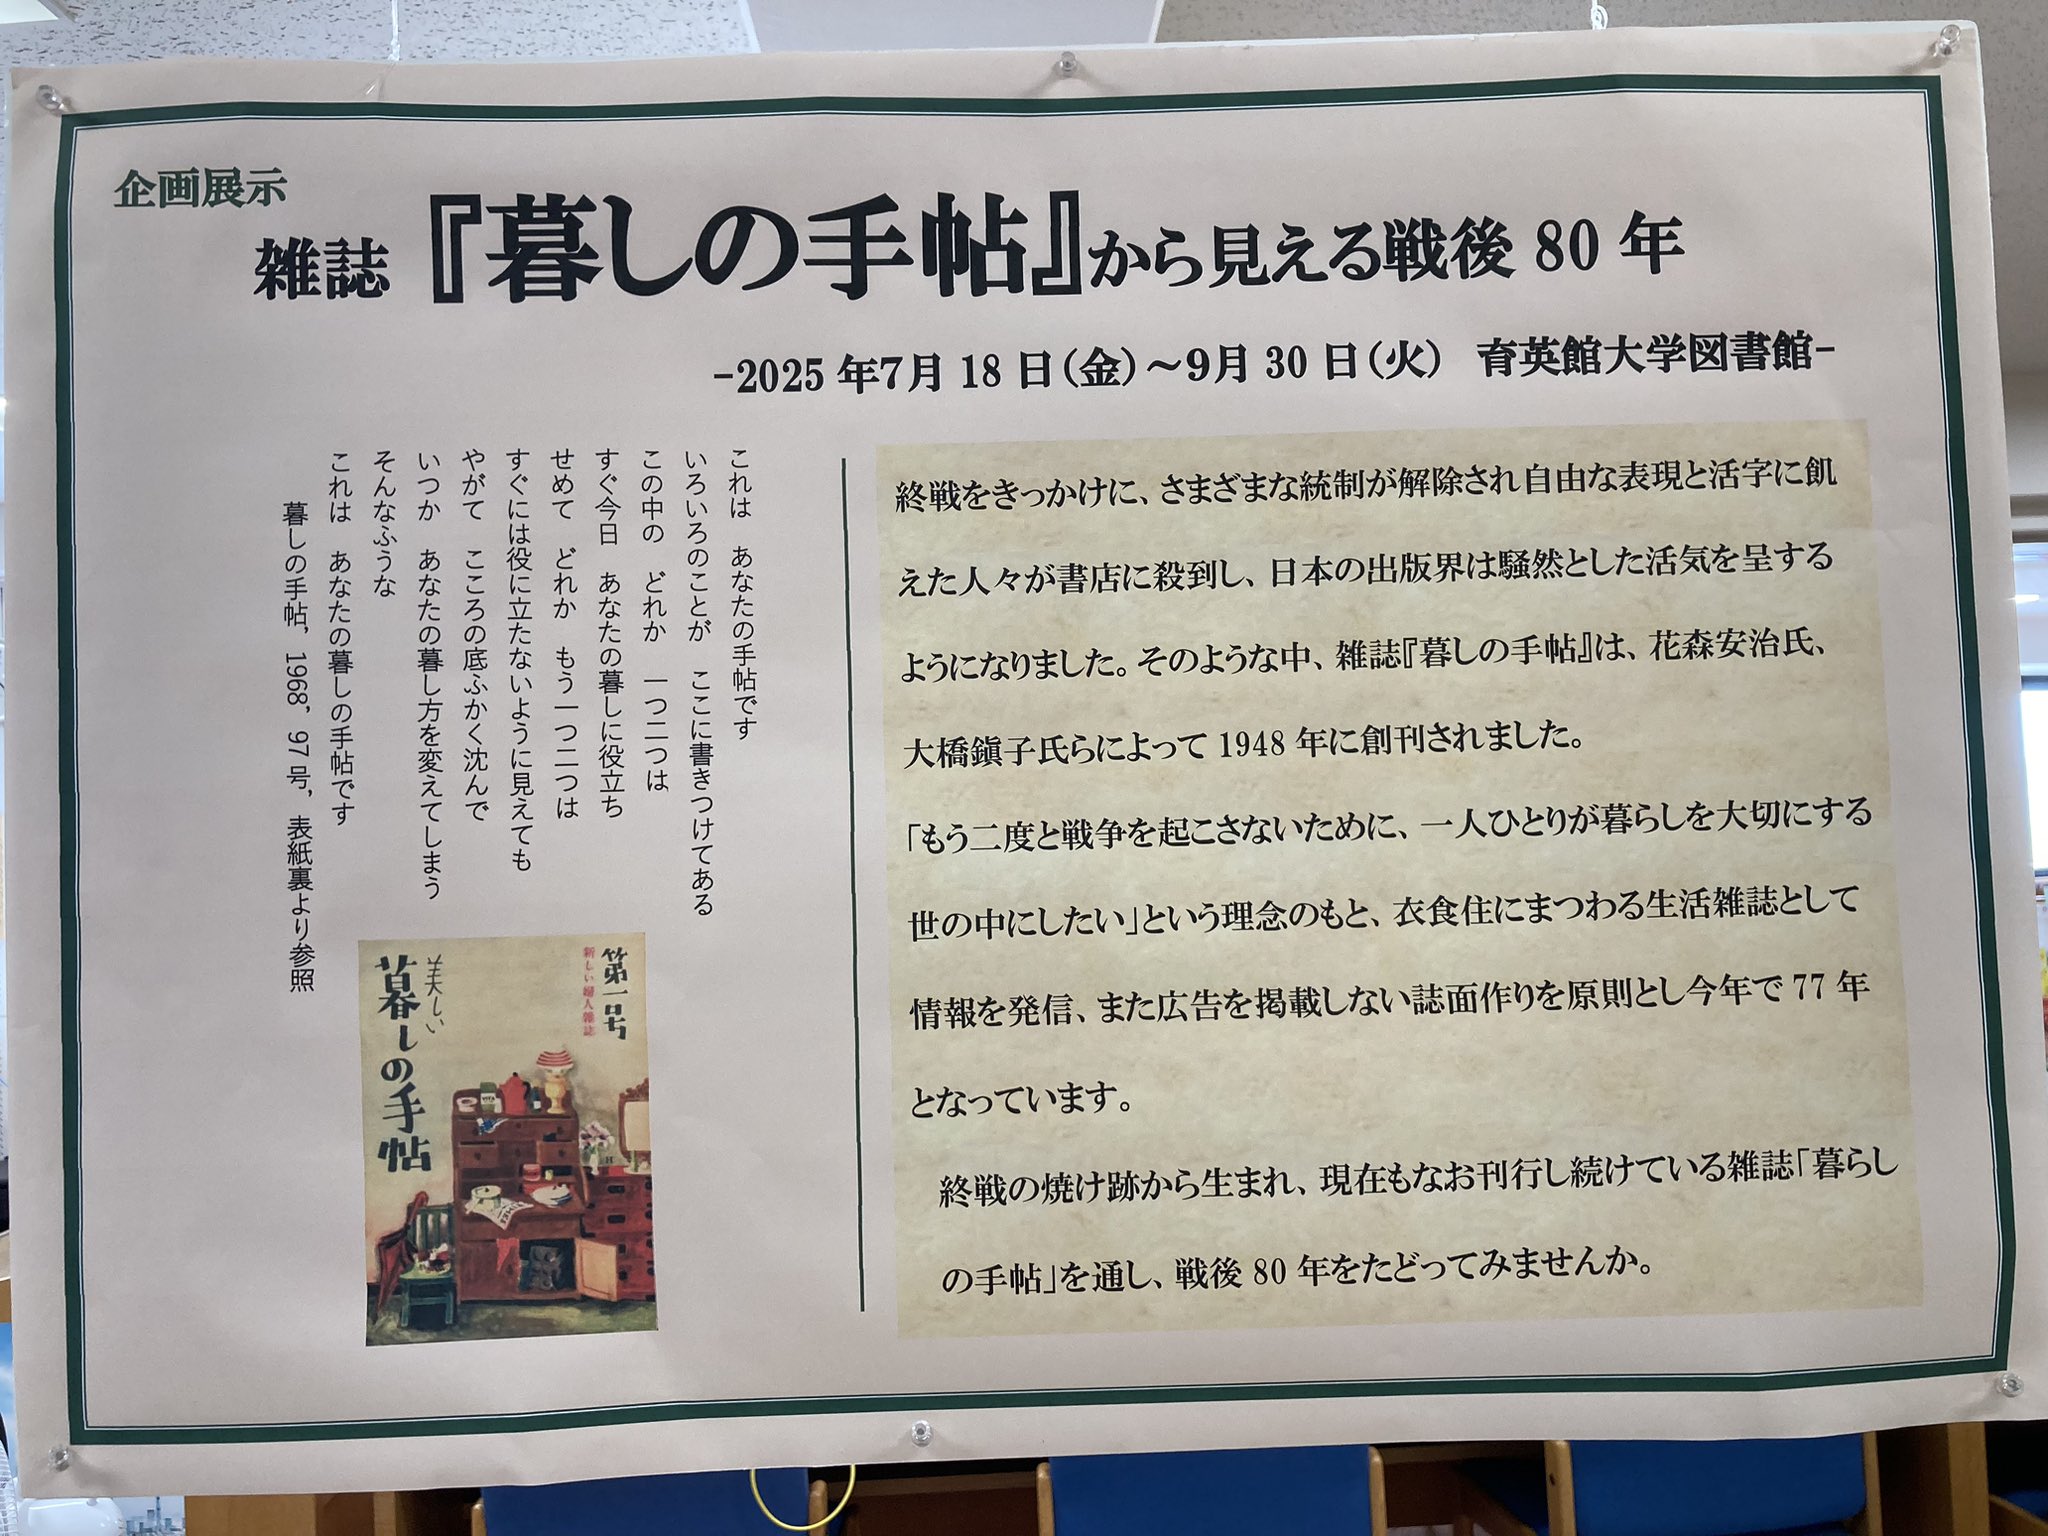 企画展示
雑誌『暮しの手帖』から見える戦後80年
-2025年7月18日(金)～9月30日(火) 育英館大学図書館-
これは あなたの手帖です
いろいろのことが ここに書きつけてある
この中の どれか 一つ二つは
すぐ今日 あなたの暮しに役立ち
せめて どれか もう一つ二つは
すぐには役に立たないように見えても
やがて こころの底ふかく沈んで
いつか あなたの暮し方を変えてしまう
そんなふうな
これは あなたの暮しの手帖です
暮しの手帖, 1968, 97号, 表紙裏より参照
第一号
新しい婦人雑誌
美しい
暮しの手帖
終戦をきっかけに、さまざまな統制が解除され自由な表現と活字に飢
えた人々が書店に殺到し、日本の出版界は騒然とした活気を呈する
ようになりました。そのような中、雑誌『暮しの手帖』は、花森安治氏、
大橋鎭子氏らによって1948年に創刊されました。
「もう二度と戦争を起こさないために、一人ひとりが暮らしを大切にする
世の中にしたい」という理念のもと、衣食住にまつわる生活雑誌として
情報を発信、また広告を掲載しない誌面作りを原則とし今年で77年
となっています。
終戦の焼け跡から生まれ、現在もなお刊行し続けている雑誌「暮らし
の手帖」を通し、戦後80年をたどってみませんか。